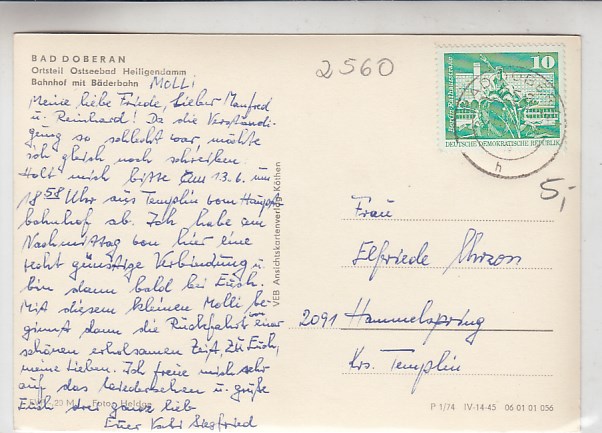 BAD DOBERAN
Ortsteil Ostseebad Heiligendamm
Bahnhof mit Bäderbahn Molli
Meine liebe Friede, lieber Manfred
u. Reinhard! Da die Verständi-
gung so schlecht war, möchte
ich gleich noch schreiben.
Holt mich bitte am 13.6. um
18 58 Uhr aus Templin vom Haupt
bahnhof ab. Ich habe am
Nachmittag von hier eine
recht günstige Verbindung u.
bin dann bald bei Euch.
Mit diesem kleinen Molli be-
ginnt dann die Rückfahrt von einer
schönen erholsamen Zeit, zu Euch,
meine Lieben. Ich freue mich sehr
auf das Wiedersehen u. grüße
Euch drei ganz lieb
Euer Vati Siegfried
23 M Foto: Heldge
VEB Ansichtskartenverlag Köthen
2560
10
Berlin, Rathausstraße
DEUTSCHE DEMOKRATISCHE REPUBLIK
h
5,-
Frau
Elfriede
2091 Hammelspring
Krs. Templin
P 1/74 IV-14-45 06 01 01 056